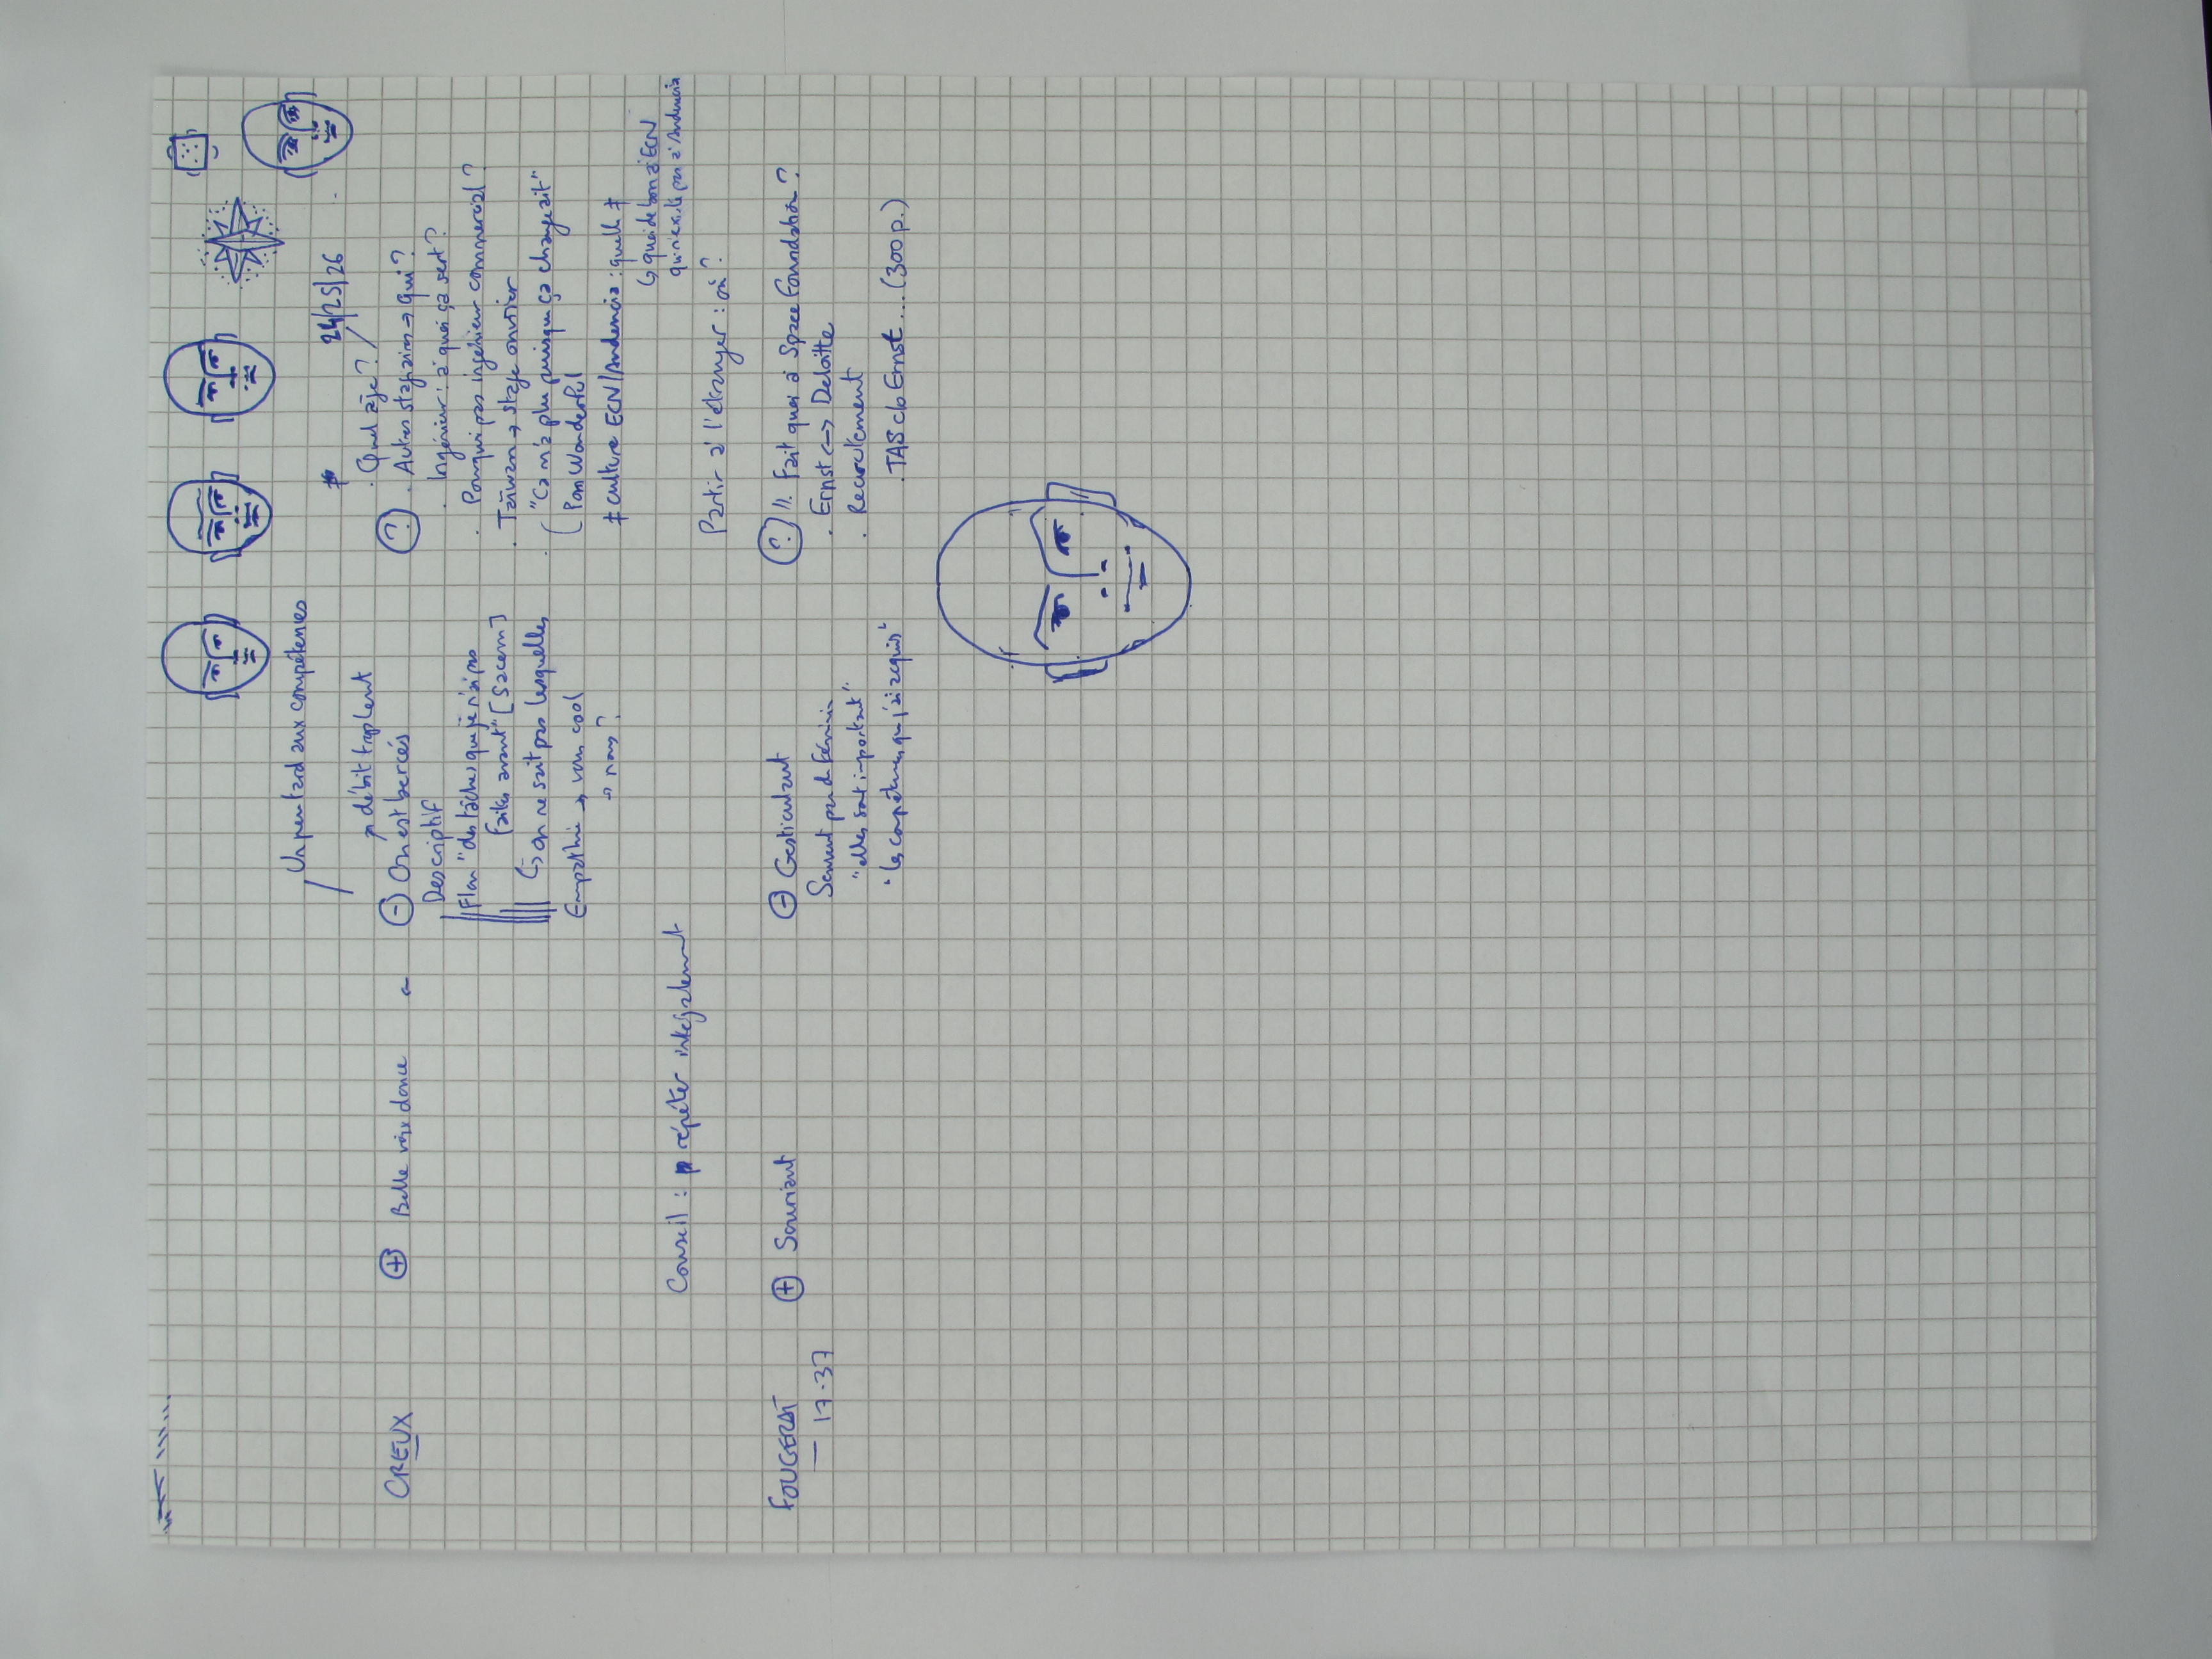 Un peu tard aux compétences
24/25/26
. Quel âge ?
↗ débit trop lent
CREUX
⊕ Belle voix douce
⊖ On est bercés
Descriptif
Flou "des tâches que je n'ai pas
faites avant" [Sacem]
↳ on ne sait pas lesquelles
Empathie → vous cool
→ nous ?
? . Autres stagiaires → qui ?
. Ingénieur : à quoi ça sert ?
. Pourquoi pas ingénieur commercial ?
. Taïwan → stage ouvrier
. "Ça m'a plu puisque ça changeait"
( Pom Wonderful
≠ culture ECN/Audencia : quelle ≠
↳ quoi de bon à ECN
qui n'existe pas à Audencia
Conseil : répéter intégralement
Partir à l'étranger : où ?
FOUGERAT
— 17.37
⊕ Souriant
⊖ Gesticulant
Servent pas de féminin
"elles sont important"
"les compétences que j'ai acquis"
? Fait quoi à Space Foundation ?
. Ernst <-> Deloitte
. Recrutement
. TAS clo Ernst... (300 p.)